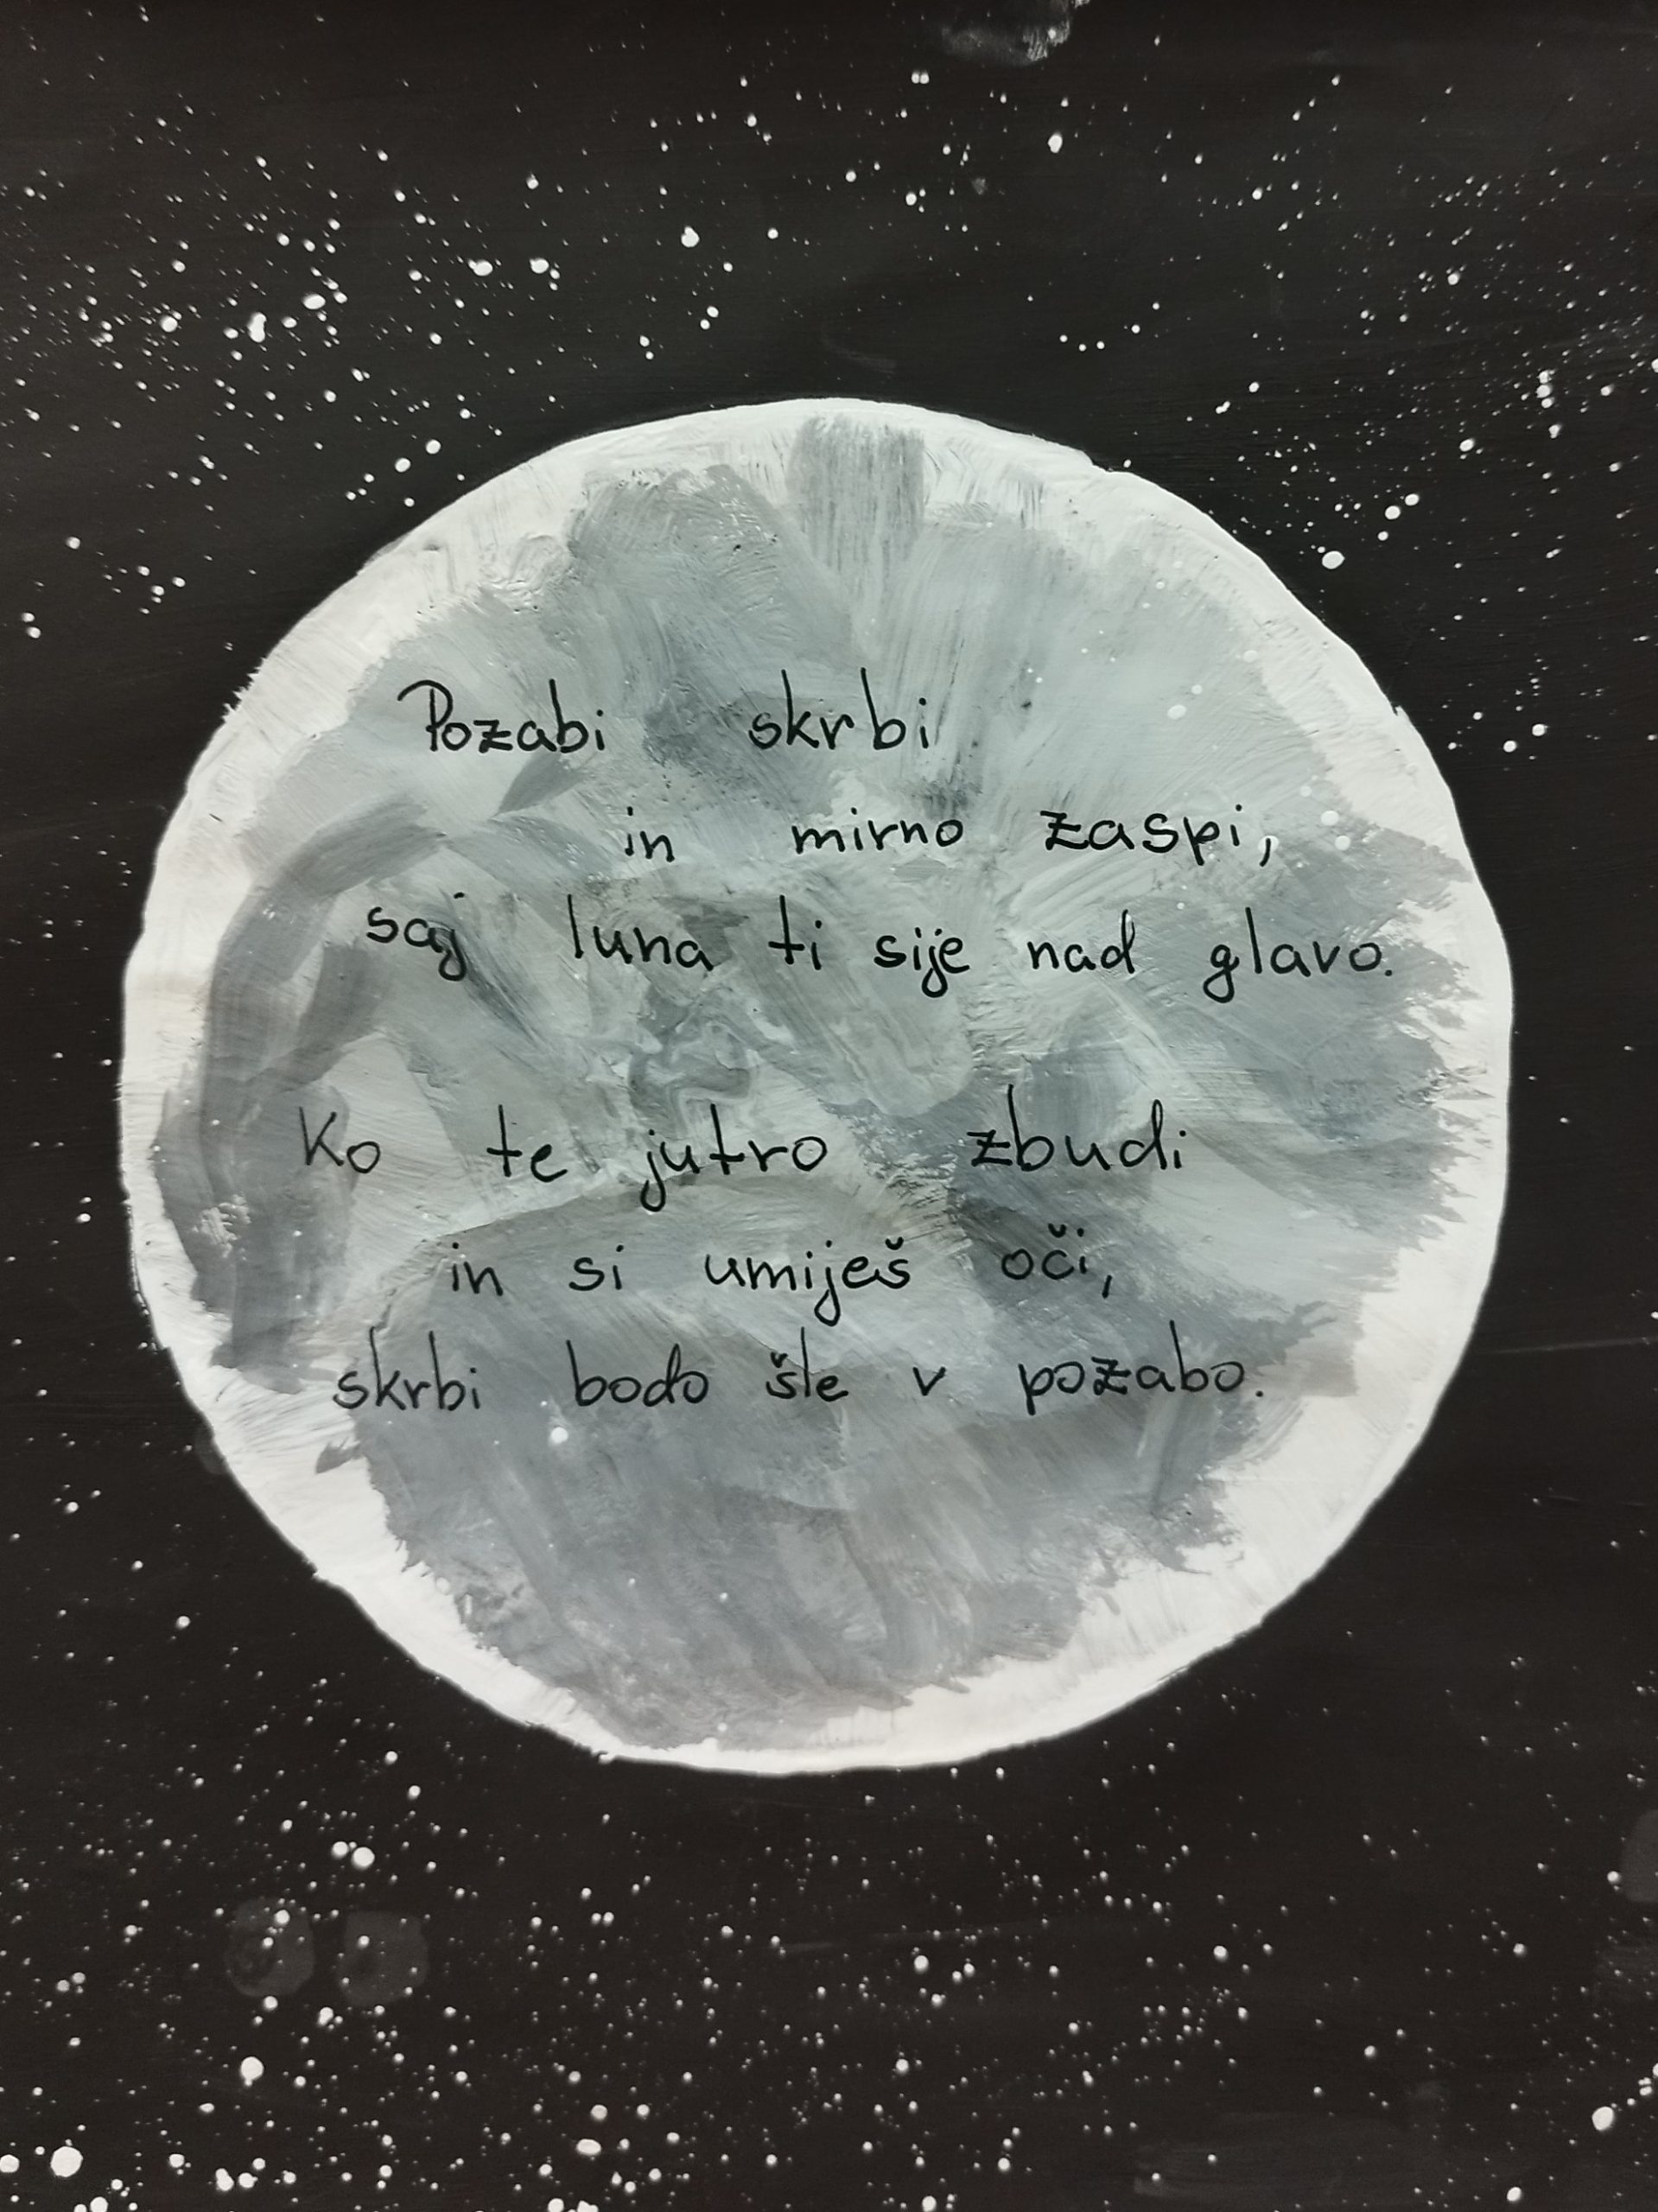 Pozabi skrbi
in mirno zaspi,
saj luna ti sije nad glavo.
Ko te jutro zbudi
in si umiješ oči,
skrbi bodo šle v pozabo.